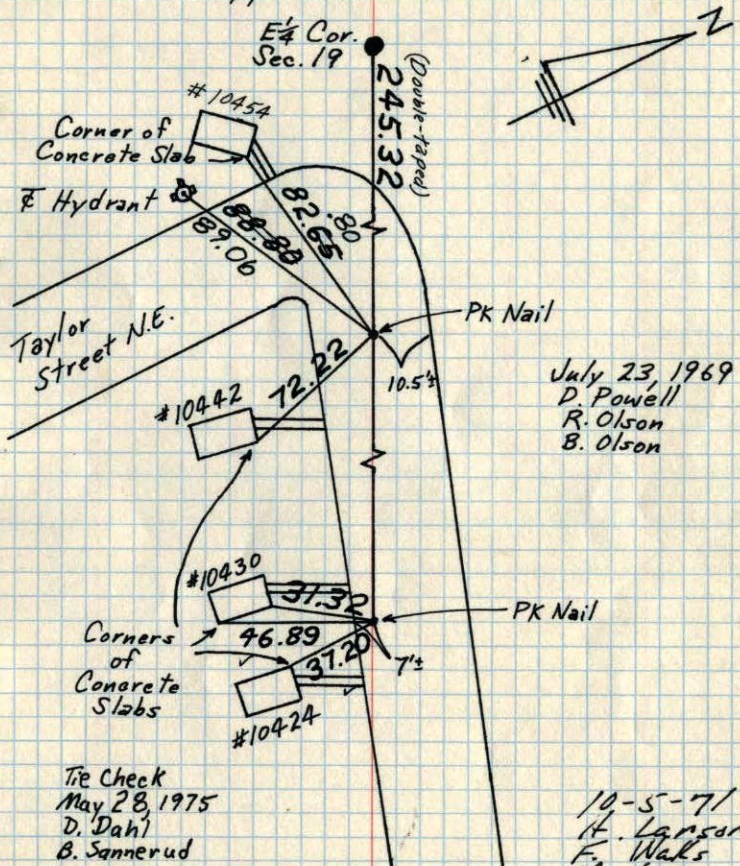 E¼ Cor.
Sec. 19
(Double-taped)
245.32
N
#10454
Corner of
Concrete Slab
₠ Hydrant
82.80
82.65
88.80
89.06
Taylor
Street N.E.
PK Nail
10.5'±
72.22
#10442
July 23, 1969
D. Powell
R. Olson
B. Olson
#10430
31.32
PK Nail
46.89
37.20
7'±
Corners
of
Concrete
Slabs
#10424
Tie Check
May 28, 1975
D. Dahl
B. Sannerud
10-5-71
H. Larson
F. Waks